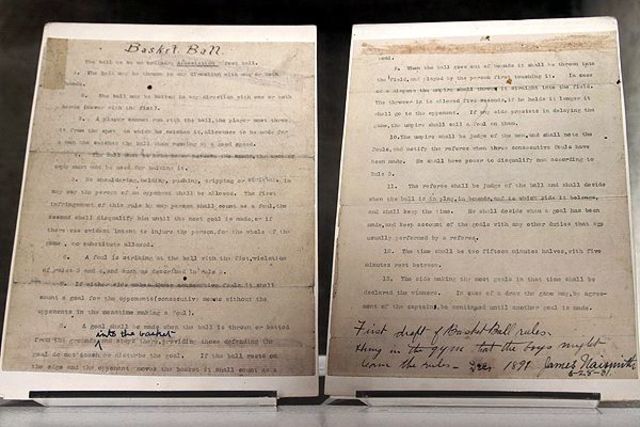 Basket Ball.
The ball to be an ordinary Association foot ball.
1. The ball may be thrown in any direction with one or both
hands.
2. The ball may be batted in any direction with one or both
hands (never with the fist).
3. A player cannot run with the ball, the player must throw
it from the spot on which he catches it, allowance to be made for
a man who catches the ball when running at a good speed.
4. The ball must be held
must not be used for holding it.
5. No shouldering, holding, pushing, tripping or striking, in
any way the person of an opponent shall be allowed. The first
infringement of this rule by any person shall count as a foul, the
second shall disqualify him until the next goal is made, or if
there was evident intent to injure the person, for the whole of the
game, no substitute allowed.
6. A foul is striking at the ball with the fist, violation
of rules 3 and 4, and such as described in rule 5.
7. If either side makes three consecutive fouls, it shall
count a goal for the opponents (consecutive means without the
opponents in the meantime making a foul).
8. A goal shall be made when the ball is thrown or batted
into the basket
from the grounds and stays there, providing those defending the
goal do not touch or disturbe the goal. If the ball rests on
the edge and the opponent moves the basket it shall count as a
goal.
9. When the ball goes out of bounds it shall be thrown into
the field, and played by the person first touching it. In case
of a dispute the umpire shall throw it straight into the field.
The thrower in is allowed five seconds, if he holds it longer it
shall go to the opponent. If any side persists in delaying the
game, the umpire shall call a foul on them.
10. The umpire shall be judge of the men, and shall note the
fouls, and notify the referee when three consecutive fouls have
been made. He shall have power to disqualify men according to
Rule 5.
11. The referee shall be judge of the ball and shall decide
when the ball is in play, in bounds, and to which side it belongs,
and shall keep the time. He shall decide when a goal has been
made, and keep account of the goals with any other duties that are
usually performed by a referee.
12. The time shall be two fifteen minutes halves, with five
minutes rest between.
13. The side making the most goals in that time shall be
declared the winners. In case of a draw the game may, by agree-
ment of the captains, be continued until another goal is made.
First draft of Basket Ball rules.
Hung in the gym that the boys might
learn the rules - Dec 1891 James Naismith
6-28-31